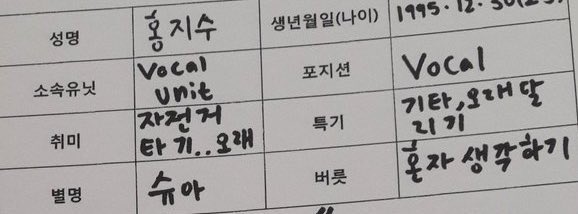 성명 홍지수 생년월일(나이) 1995.12.30
소속유닛 Vocal unit 포지션 Vocal
취미 자전거 타기..오래 특기 기타,오래달리기
별명 슈아 버릇 혼자 생각하기